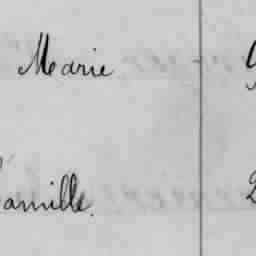 Marie
Camille.